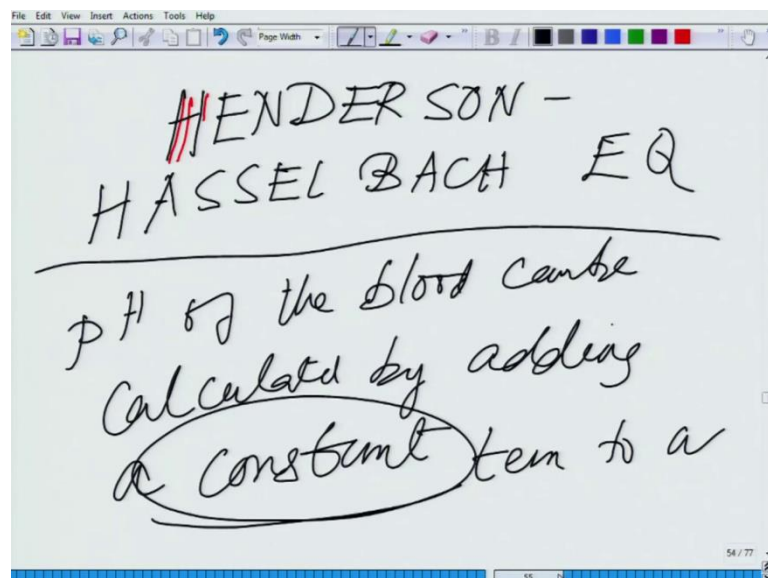 File Edit View Insert Actions Tools Help
Page Width
HENDERSON -
HASSEL BACH EQ
pH of the blood can be
calculated by adding
a constant term to a
54 / 77
55